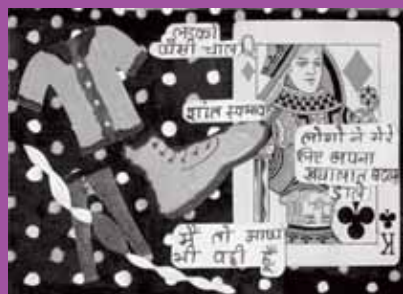 लड़को
जैसी चाल
शांत स्वभाव
लोगो ने मेरे
लिए अपना
डाले
मैं तो आज
भी वही
K